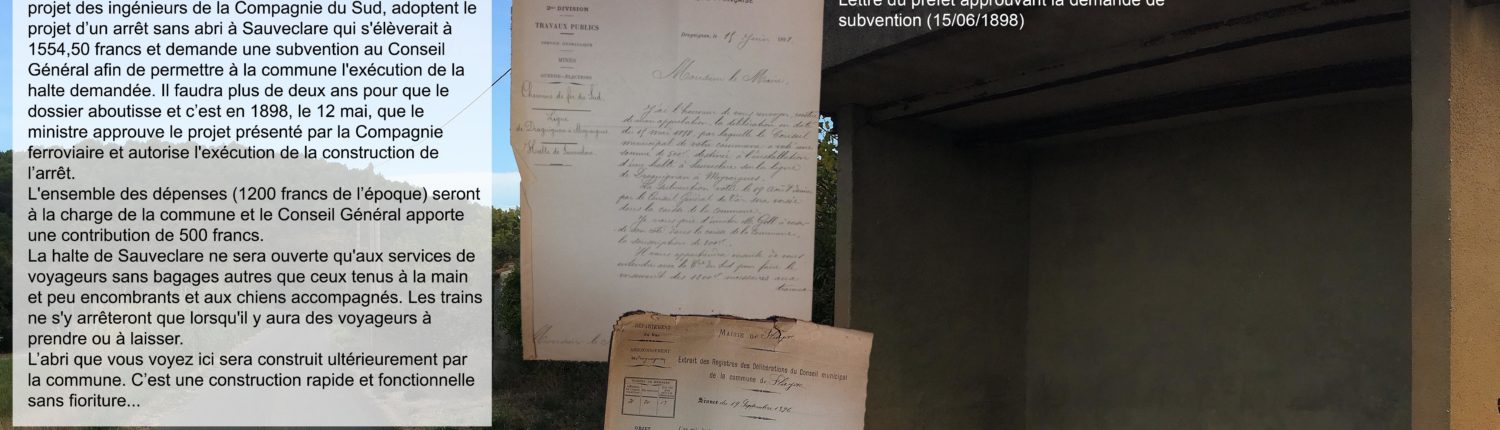 projet des ingénieurs de la Compagnie du Sud, adoptent le
projet d'un arrêt sans abri à Sauveclare qui s'élèverait à
1554,50 francs et demande une subvention au Conseil
Général afin de permettre à la commune l'exécution de la
halte demandée. Il faudra plus de deux ans pour que le
dossier aboutisse et c'est en 1898, le 12 mai, que le
ministre approuve le projet présenté par la Compagnie
ferroviaire et autorise l'exécution de la construction de
l'arrêt.
L'ensemble des dépenses (1200 francs de l'époque) seront
à la charge de la commune et le Conseil Général apporte
une contribution de 500 francs.
La halte de Sauveclare ne sera ouverte qu'aux services de
voyageurs sans bagages autres que ceux tenus à la main
et peu encombrants et aux chiens accompagnés. Les trains
ne s'y arrêteront que lorsqu'il y aura des voyageurs à
prendre ou à laisser.
L'abri que vous voyez ici sera construit ultérieurement par
la commune. C'est une construction rapide et fonctionnelle
sans fioriture...
2me DIVISION
TRAVAUX PUBLICS
MINES
Chemins de fer du Sud.
Ligne
de Draguignan à Meyrargues
Halte de Sauveclare.
Draguignan, le 15 Juin 1898.
Monsieur le Maire,
J'ai l'honneur de vous envoyer,
de mon approbation, la délibération en date
du 15 mai 1898 par laquelle le Conseil
municipal de votre commune a voté une
somme de 500f destinée à l'installation
d'une halte à Sauveclare sur la ligne
de Draguignan à Meyrargues.
La subvention votée le 19 Août dernier
par le Conseil Général du Var sera versée
dans la caisse de la commune.
Je vous prie d'inviter M.
de son côté dans la caisse de la commune,
la souscription de 200f.
Il vous appartiendra ensuite de vous
entendre avec la Cie du Sud pour faire le
versement des 1200f nécessaires aux
travaux.
Monsieur le
Lettre du préfet approuvant la demande de
subvention (15/06/1898)
DÉPARTEMENT
du Var
ARRONDISSEMENT
MAIRIE DE Flayosc
Extrait des Registres des Délibérations du Conseil municipal
de la commune de Flayosc
Séance du 19 Septembre 1896
OBJET